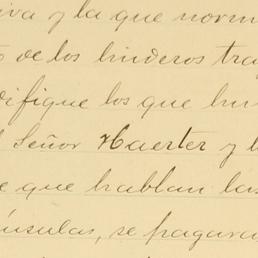 iva y la que norm
de los linderos tra
difique los que hu
Señor Haerter y l
e que hablan las
nsulas, se pagara